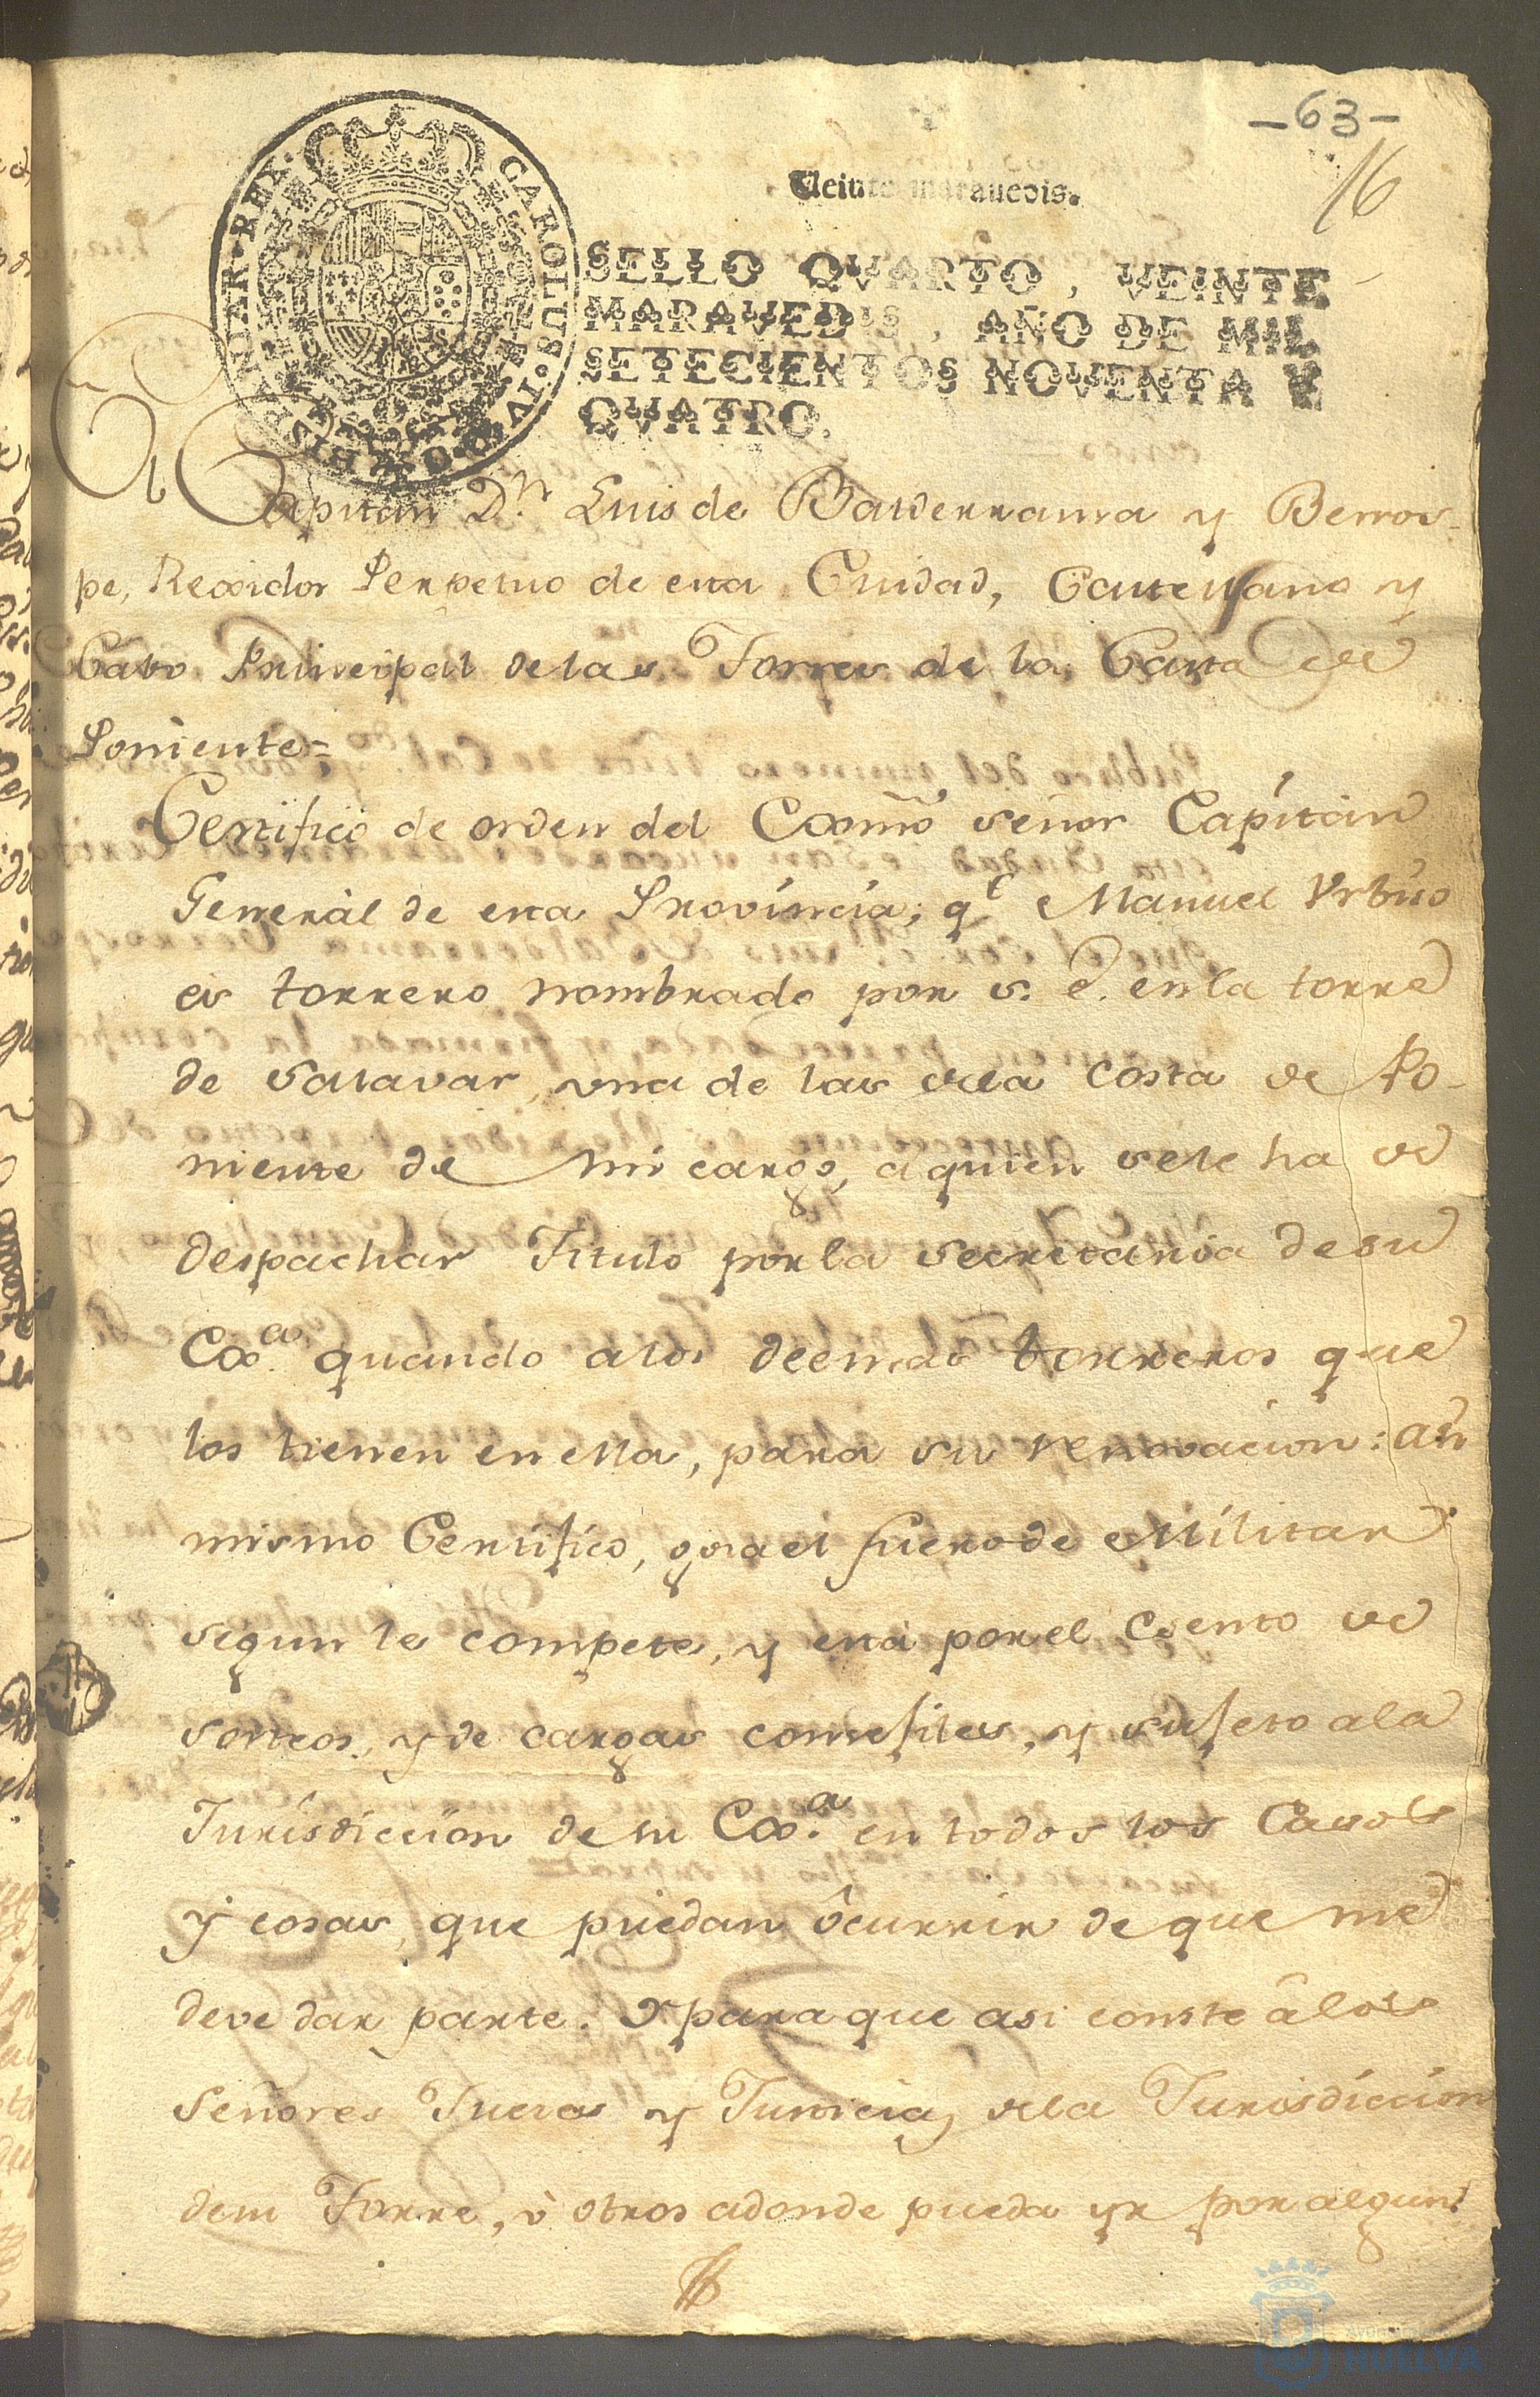 -63-
16
Veinte maravedis.
SELLO QVARTO, VEINTE
MARAVEDIS, AÑO DE MIL
SETECIENTOS NOVENTA Y
QVATRO.
CAROLUS IV D G HISPANIAR REX
El Capitan Dn. Luis de Balderrama y Berros-
pe, Rexidor Perpetuo de esta Ciudad, Castellano y
Cavo Principal de las Torres de la Costa de
Poniente=
Certifico de orden del Exmo. señor Capitan
General de esta Provincia; qe. Manuel Urbino
es torrero nombrado por s. e. en la torre
de Salavar, una de las dela costa de Po-
niente de mi cargo, a quien sele ha de
despachar Titulo por la secretaria de su
Exa. quando a los deemas torreros que
los tienen en ella, para su renovacion: asi
mismo Certifico, goza el fuero de Militar
segun le compete, y está por el esento de
sorteos, y de cargas consejiles, y sujeto a la
Jurisdiccion de su Exa. en todos los Casos
y cosas, que puedan ôcurrir de que me
deve dar parte. Y para que asi conste â los
Señores Jueces y Justicia, dela Jurisdiccion
desu Torre, ò otros adonde pueda yr por algun.
HUELVA